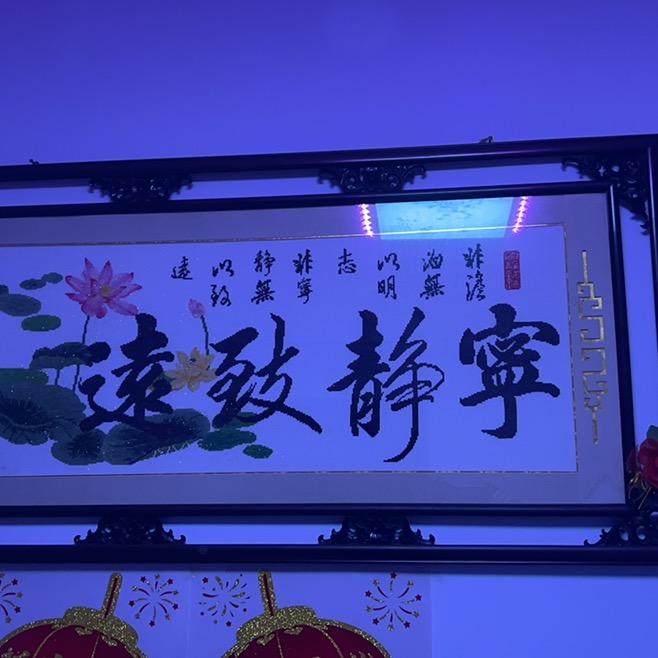 非澹
泊無
以明
志
非寧
静無
以致
遠
寧静致遠